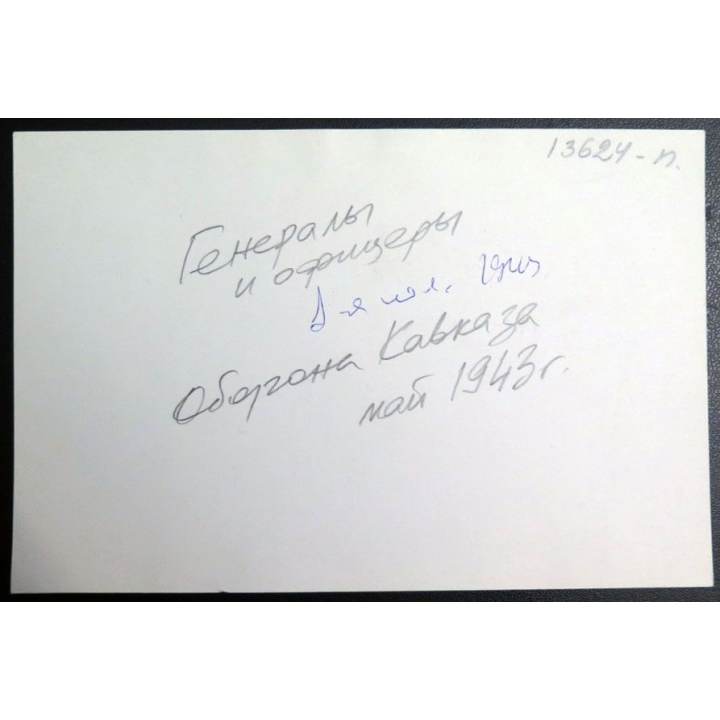 13624-п.
Генералы
и офицеры
Оборона Кавказа
май 1943г.